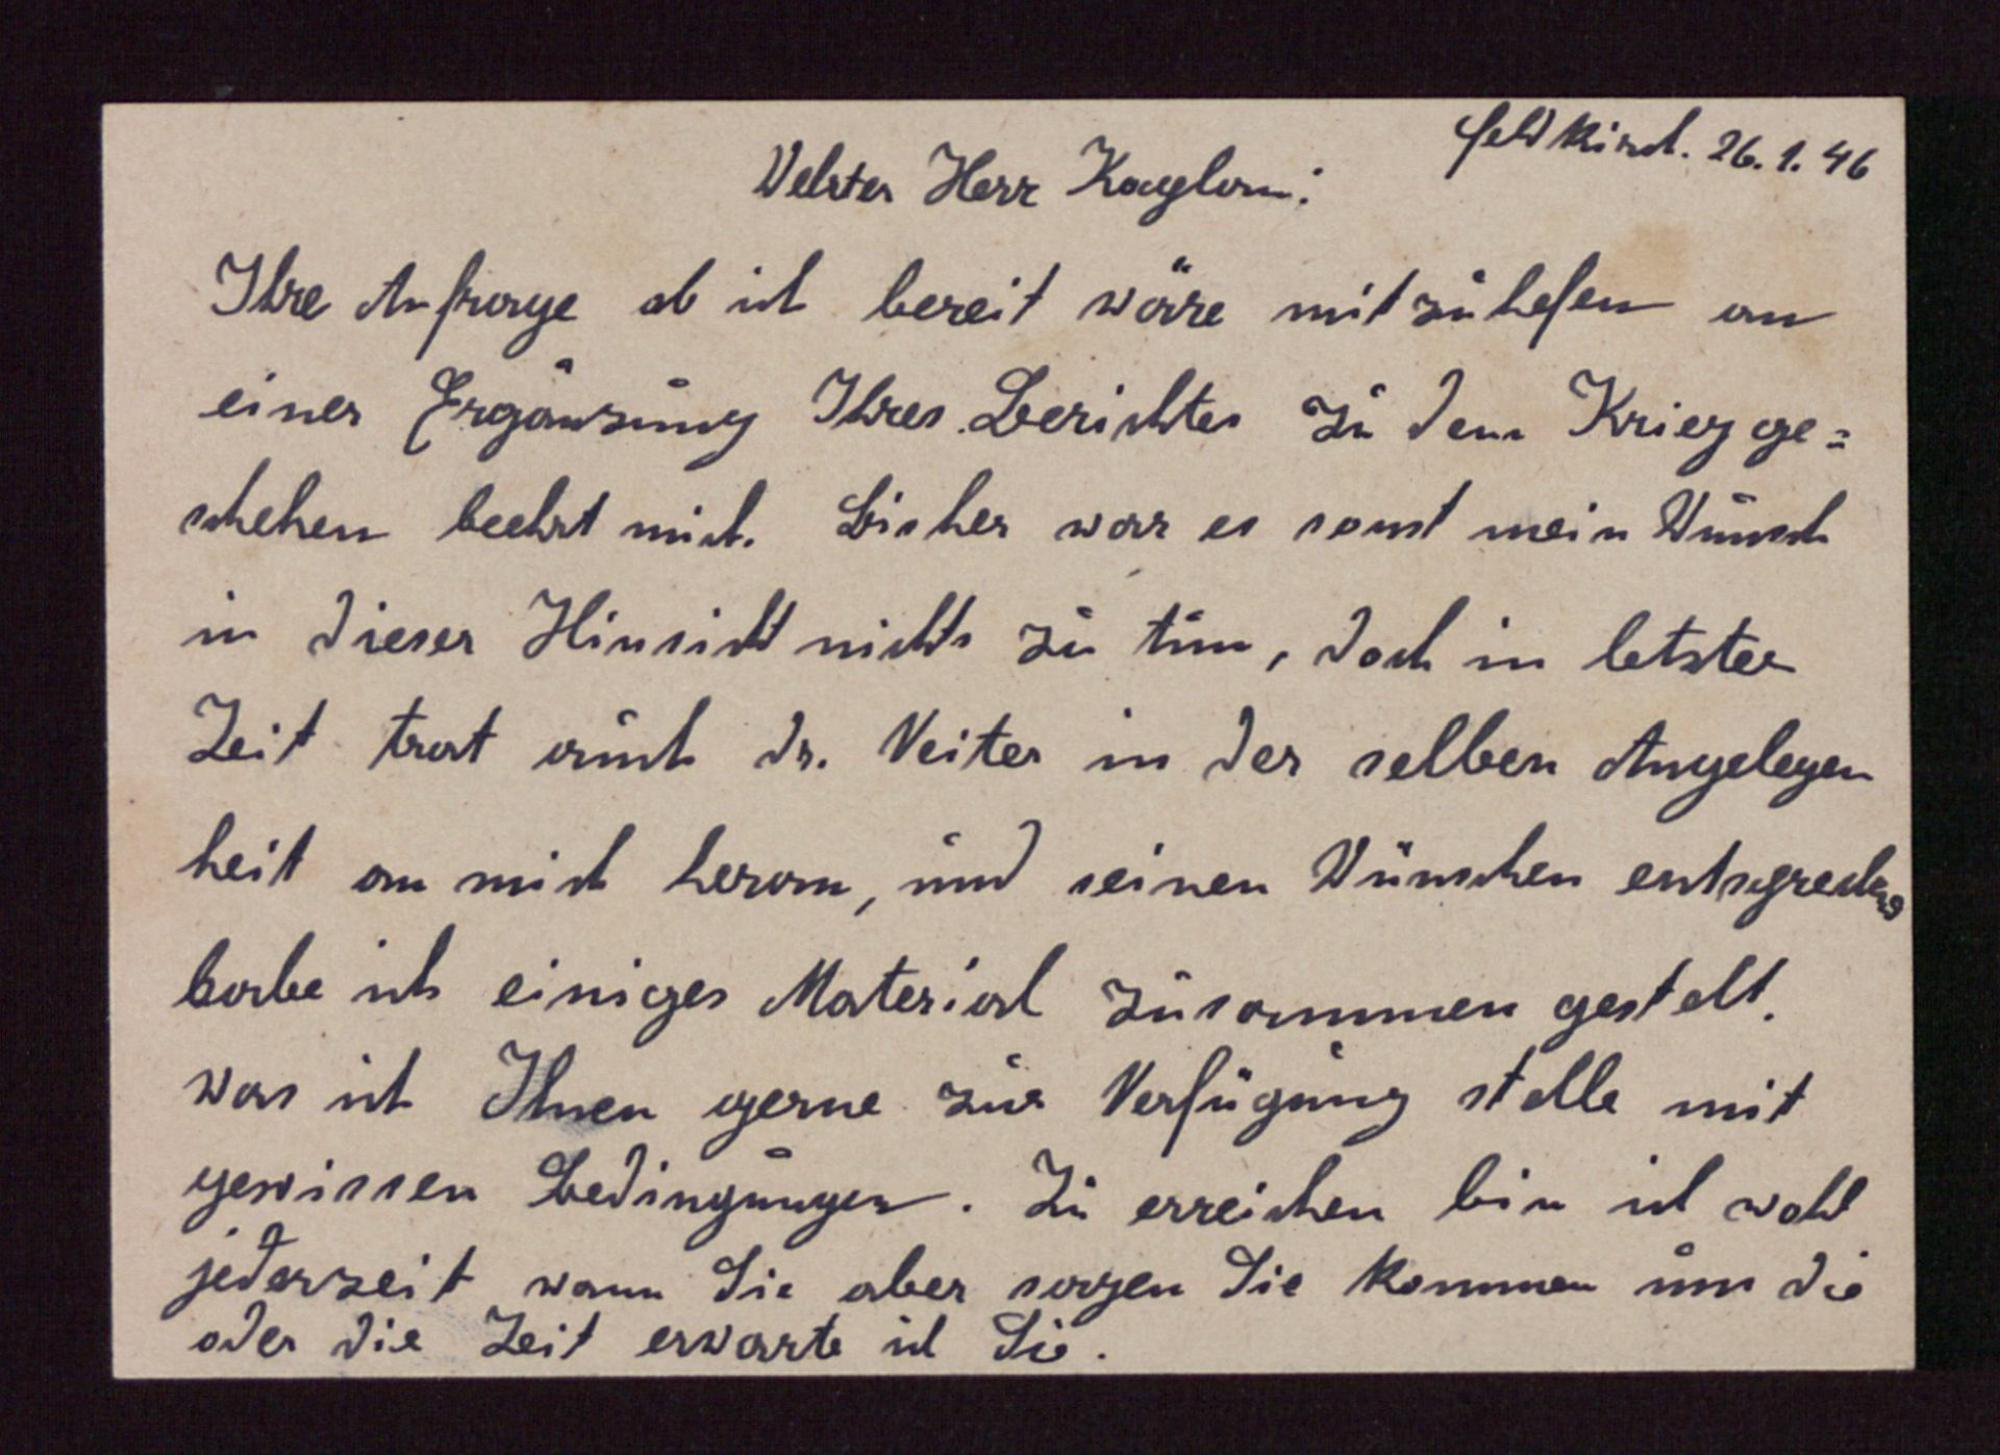 Feldkirch. 26.1.46
Velster Herr Kaplan:
Ihre Anfrage ob ich bereit wäre mitzuhelfen an
einer Ergänzung Ihres Berichtes zu dem Kriegge=
schehen beehrt mich. Bisher war es sonst mein Wunsch
in dieser Hinsicht nichts zu tun, doch in letzter
Zeit trat auch dr. Veiter in der selben Angelegen
heit an mich heran, und seinen Wünschen entsprechend
habe ich einiges Material zusammen gestellt.
was ich Ihnen gerne zur Verfügung stelle mit
gewissen Bedingungen. Zu erreichen bin ich wohl
jederzeit wann Sie aber sagen Sie kommen um die
oder die Zeit erwarte ich Sie.